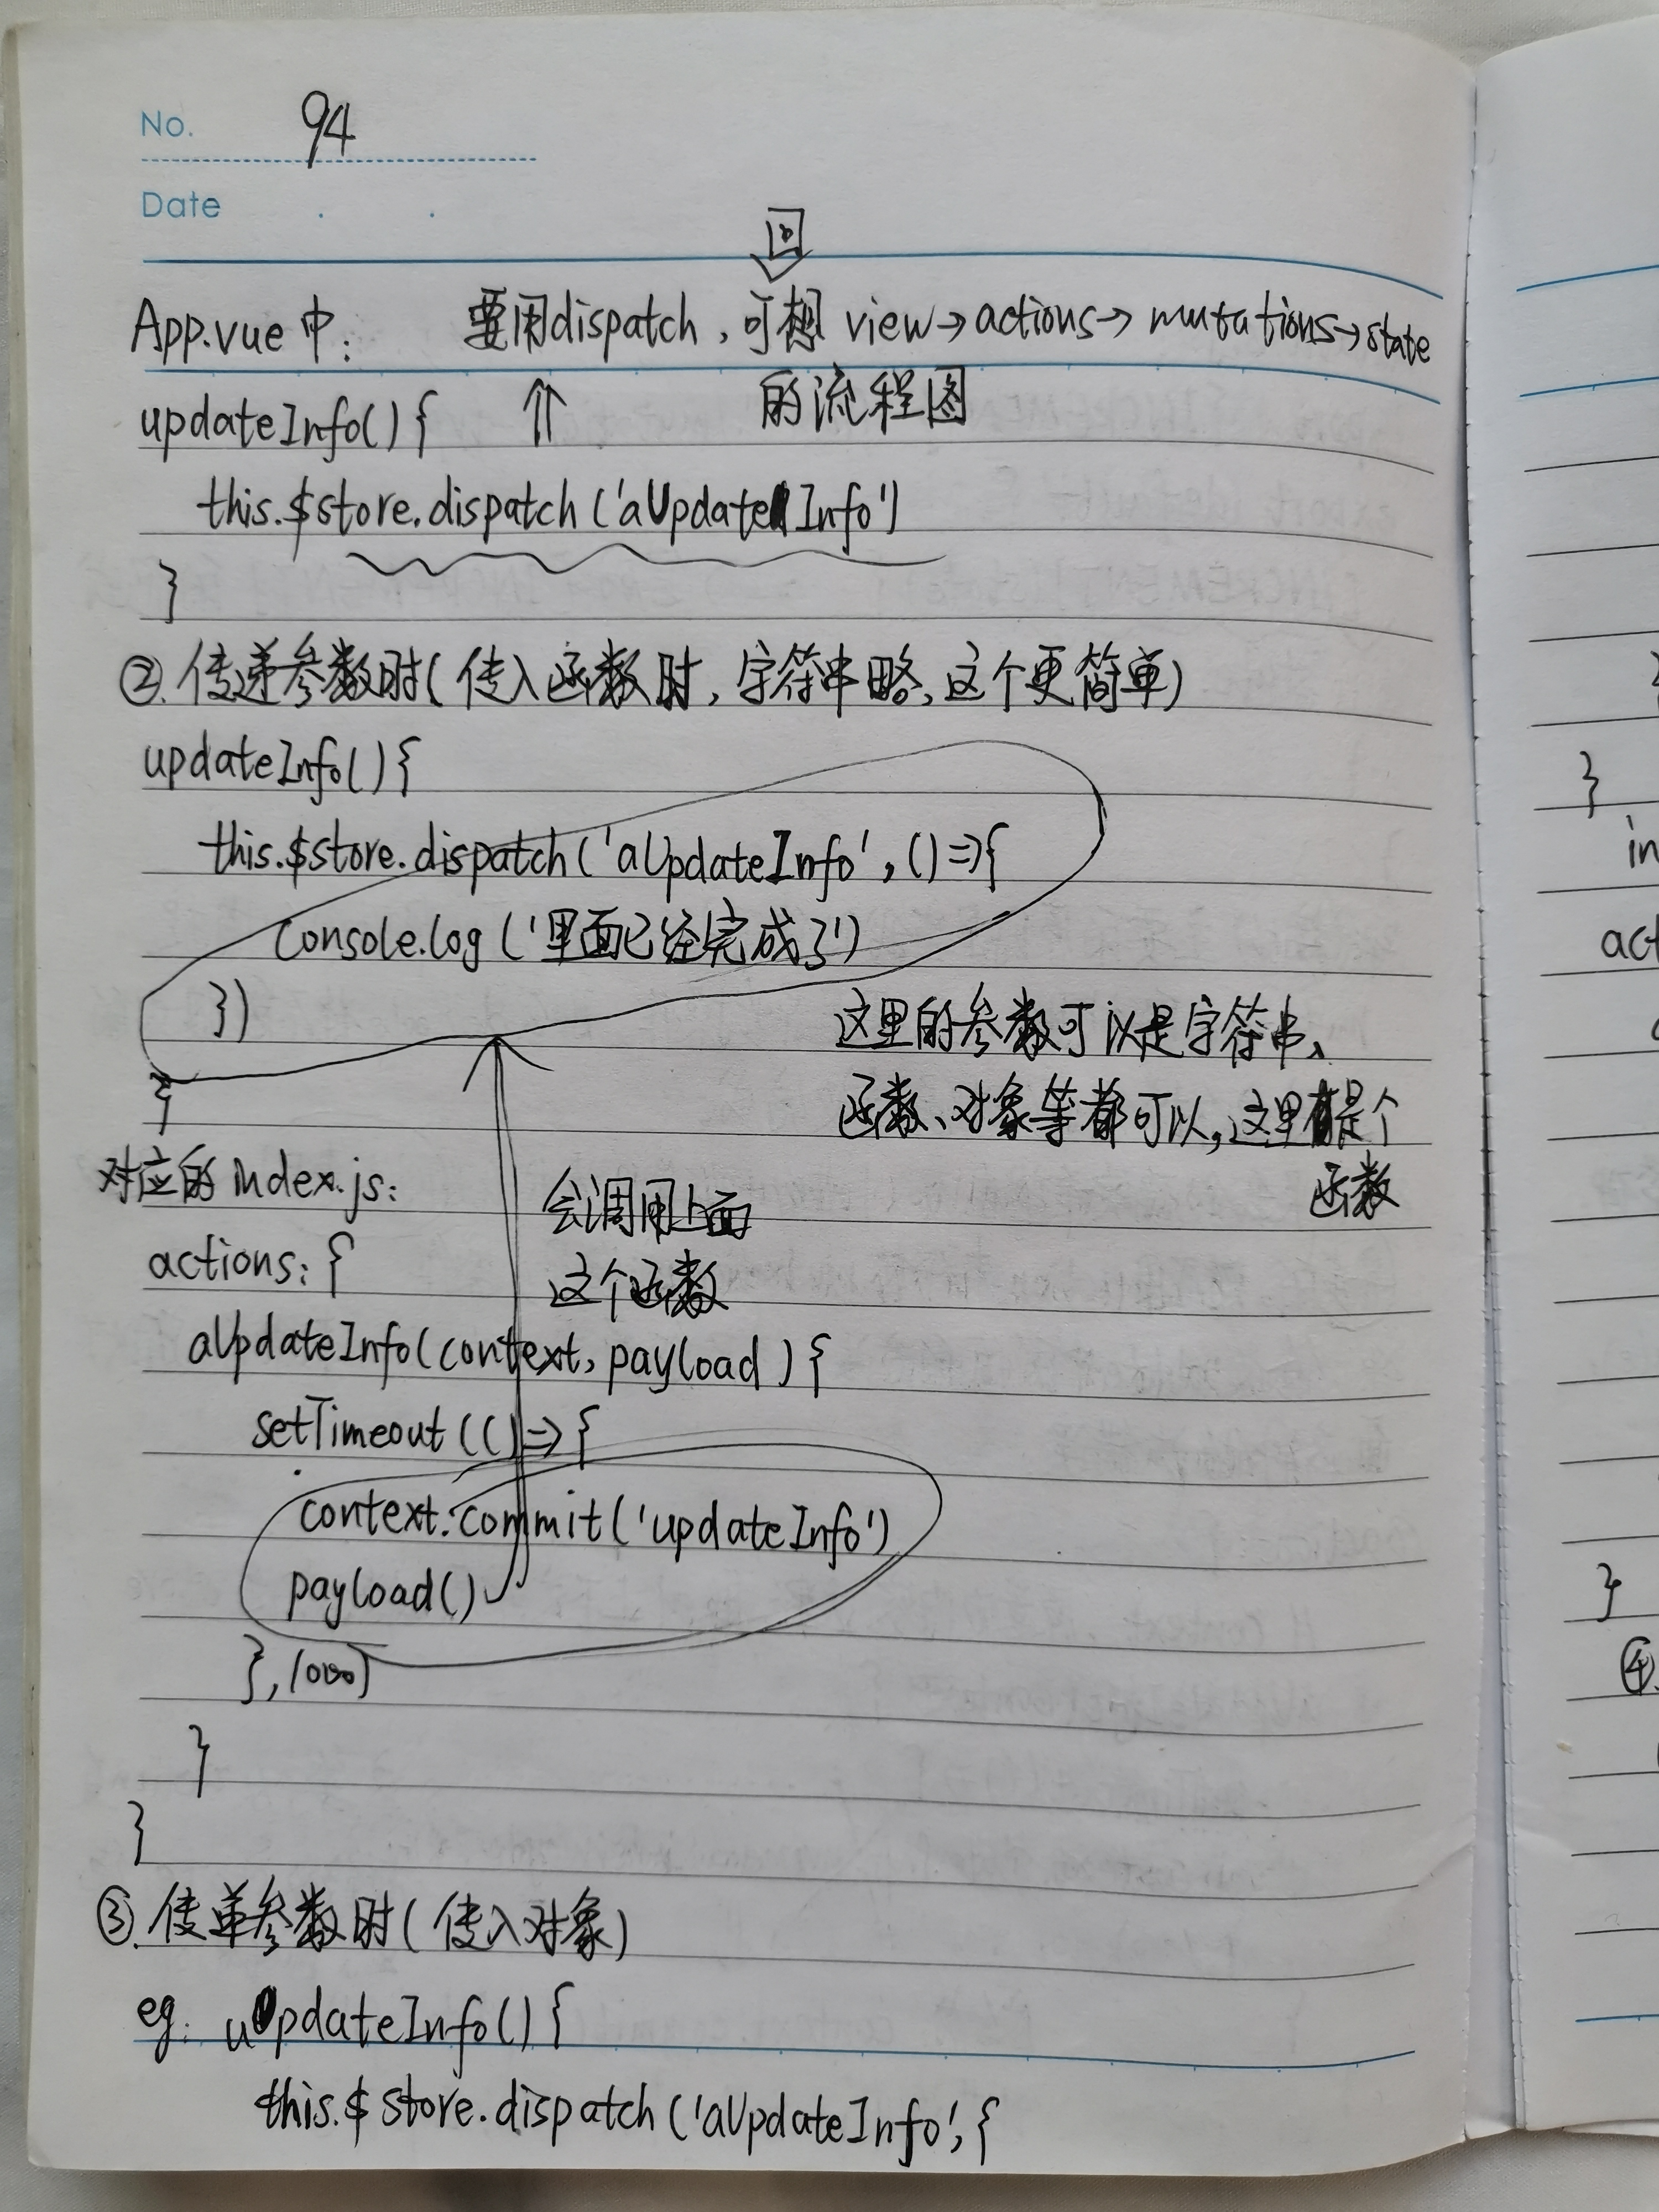 No. 94
Date
回
App.vue中: 要用dispatch,可想 view→actions→mutations→state
的流程图
updateInfo(){ ⇑
this.$store.dispatch('aUpdateInfo')
}
②.传递参数时(传入函数时,字符串略,这个更简单)
updateInfo(){
this.$store.dispatch('aUpdateInfo',()=>{
console.log('里面已经完成了')
})
}
这里的参数可以是字符串、
函数、对象等都可以,这里是个
函数
对应的index.js:
会调用上面
这个函数
actions:{
aUpdateInfo(context,payload){
setTimeout(()=>{
context.commit('updateInfo')
payload()
},1000)
}
}
③.传单参数时(传入对象)
eg: updateInfo(){
this.$store.dispatch('aUpdateInfo',{
}
in
act
}
④.